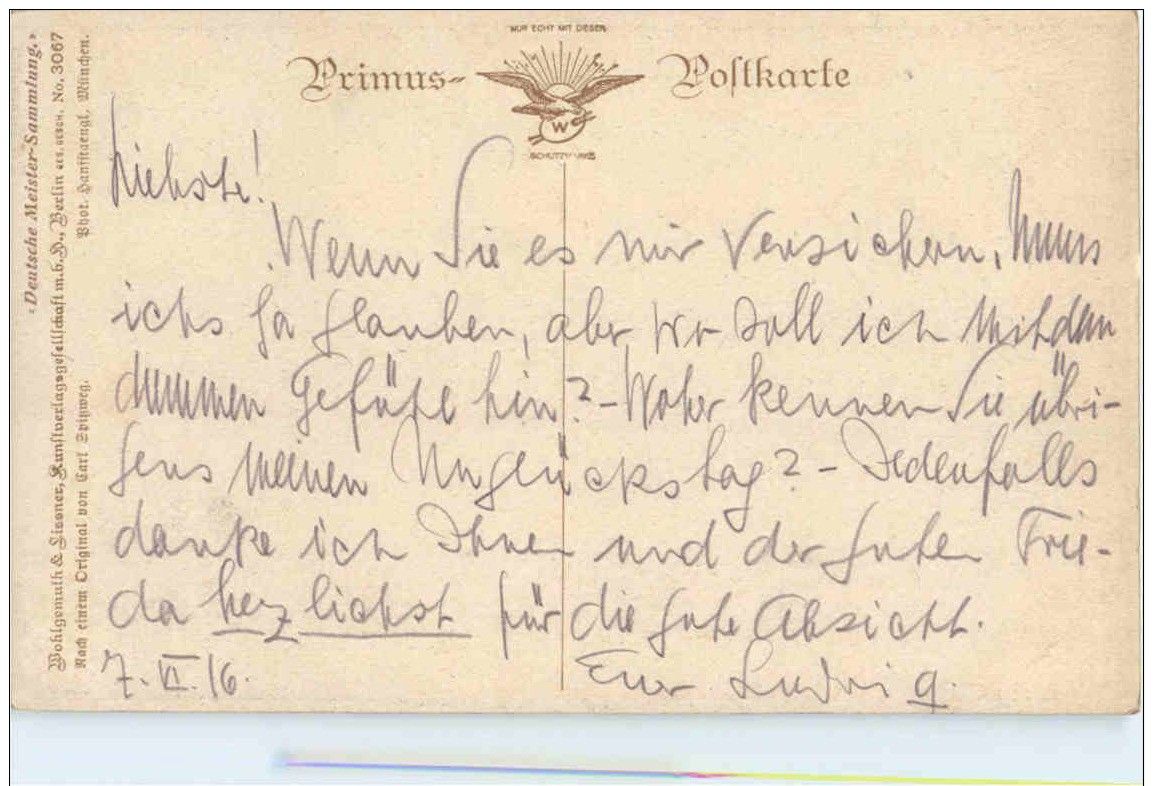 NUR ECHT MIT DIESER
Primus-Postkarte
W
SCHUTZMARKE
Liebste!
Wenn Sie es mir versichern, muss
ichs ja glauben, aber wo soll ich mit dem
dummen Gefühl hin? - Woher kennen Sie übri-
gens meinen Unglückstag? - Jedenfalls
danke ich Ihnen und der guten Frie-
da herzlichst für die gute Absicht.
7. VI. 16.
Euer Ludwig.
«Deutsche Meister-Sammlung.»
Wohlgemuth & Lissner, Kunstverlagsgesellschaft m.b.H., Berlin GES. GESCH. No. 3067
Nach einem Original von Carl Spitzweg. Phot. Hanfstaengl, München.